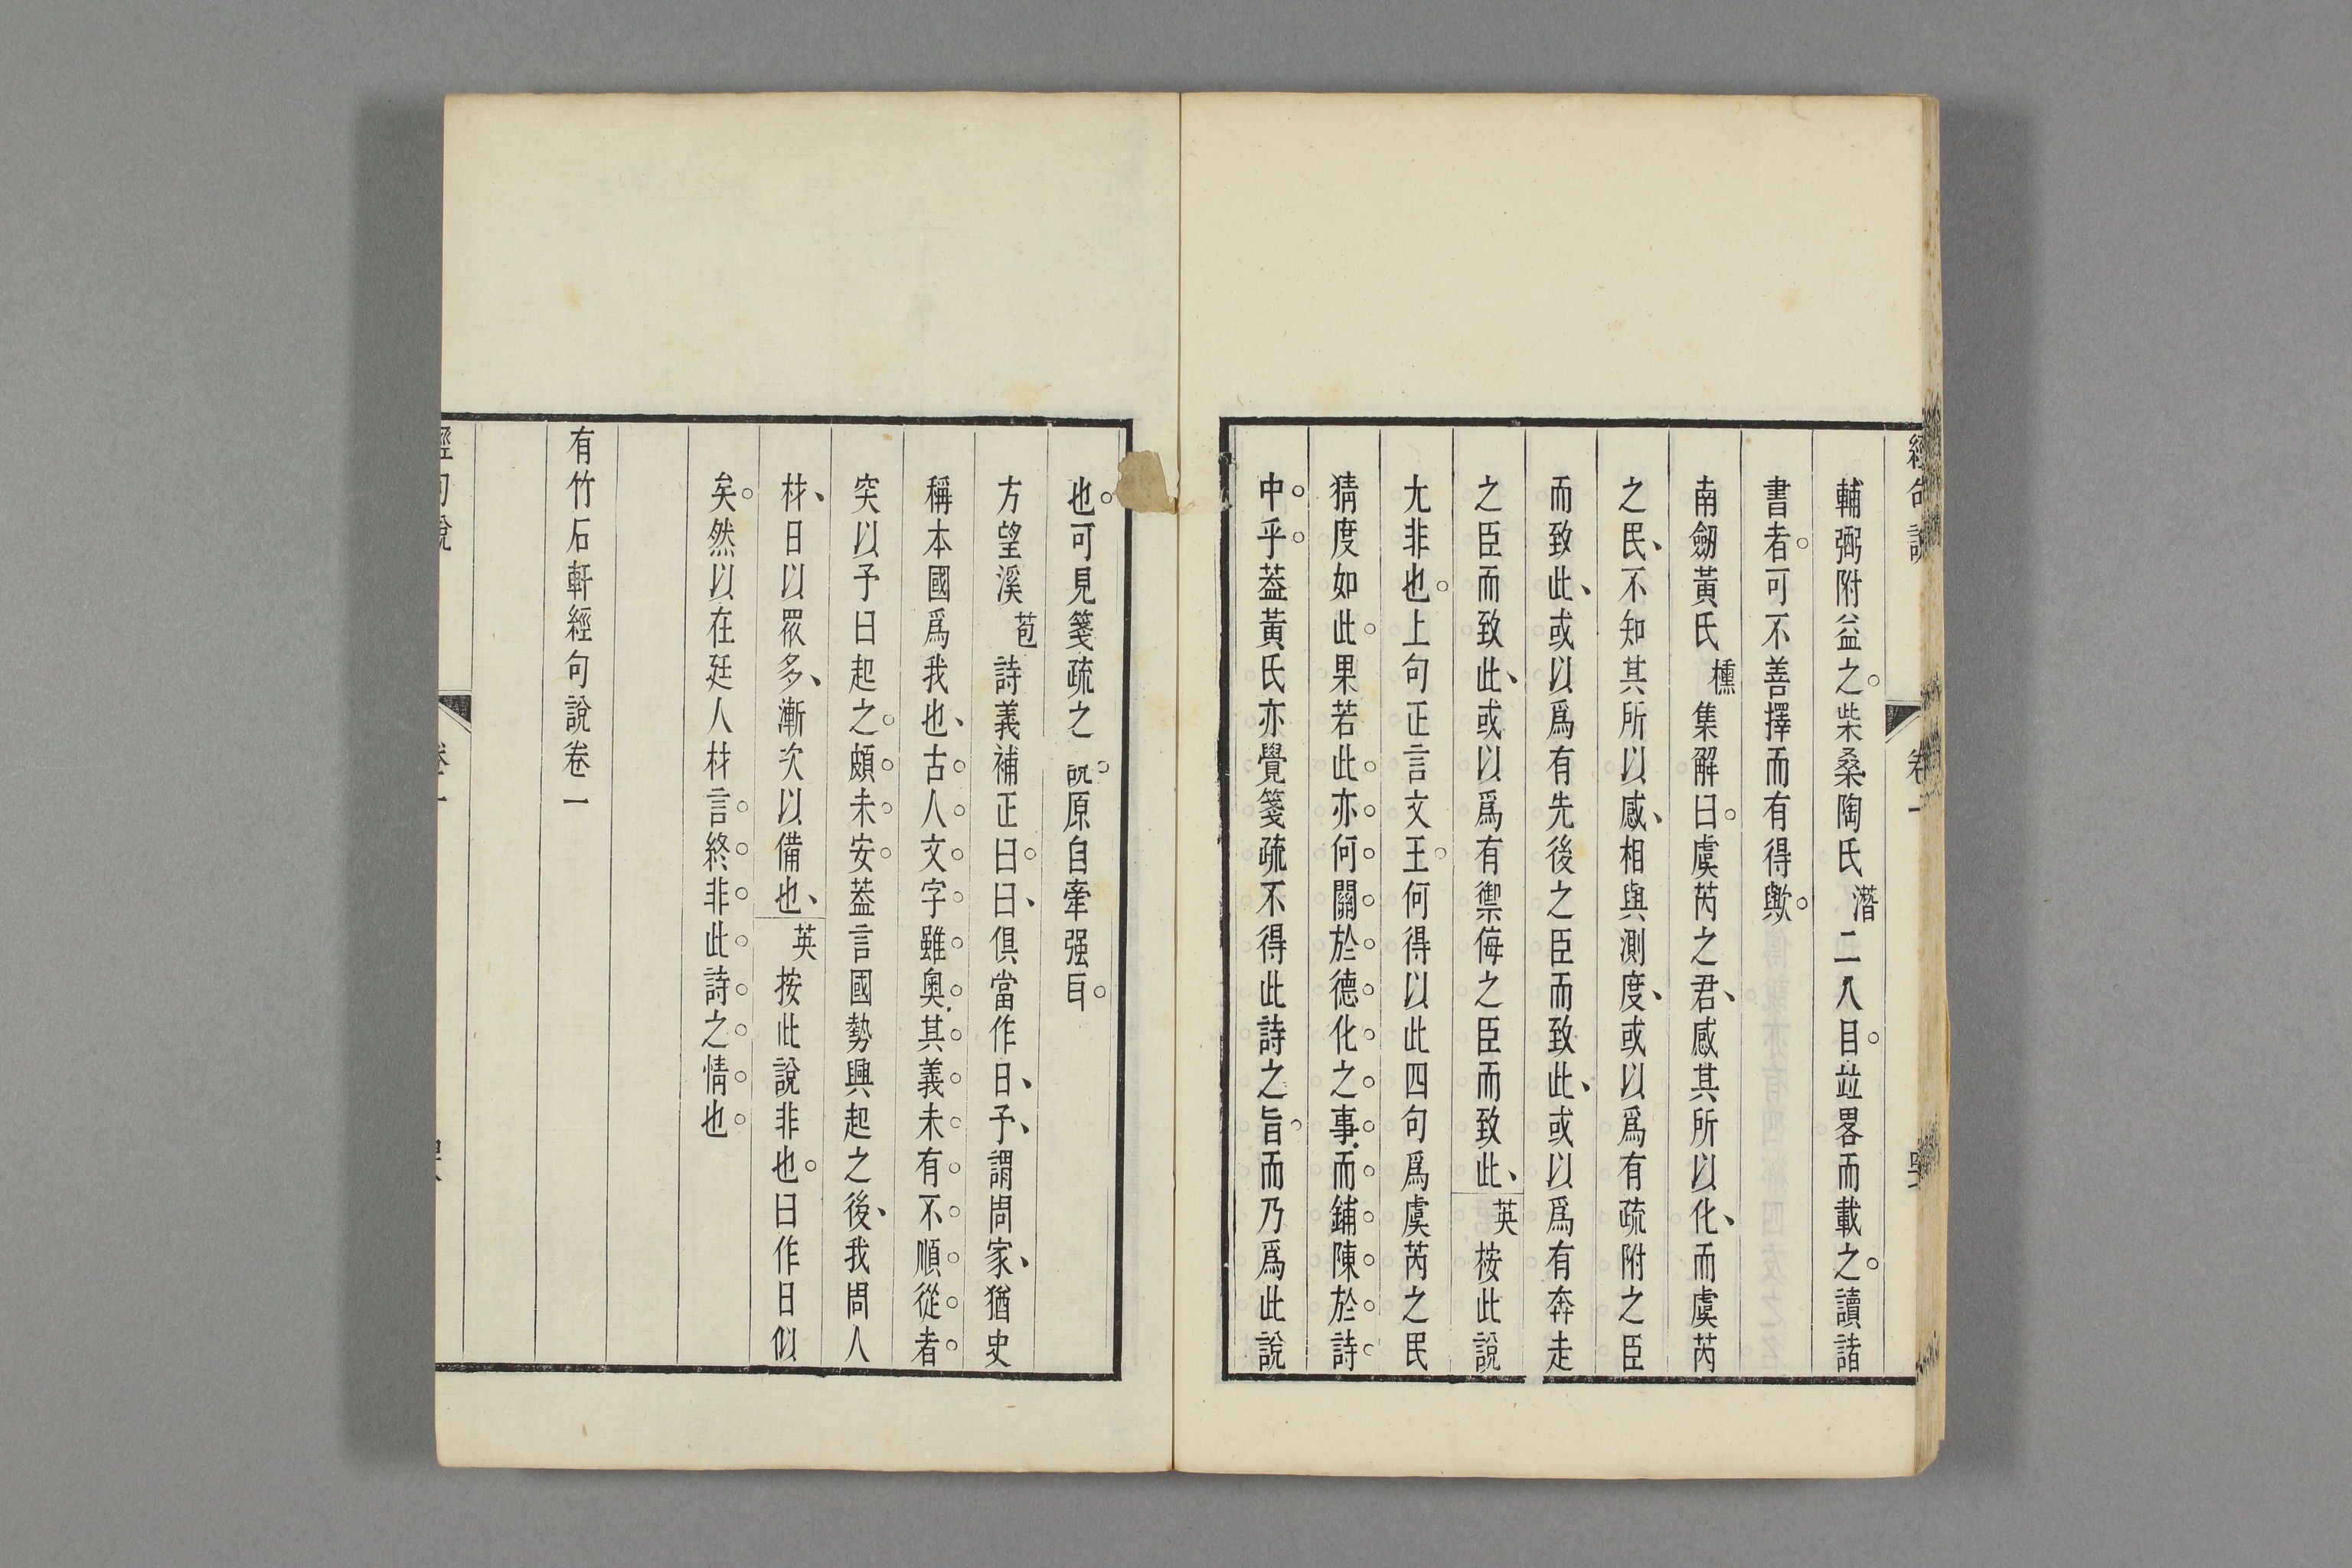 輔弼附益之柴桑陶氏潛二八目竝畧而載之讀諸
書者可不善擇而有得歟
南劒黃氏櫄集解曰虞芮之君感其所以化而虞芮
之民不知其所以感相與測度或以爲有疏附之臣
而致此或以爲有先後之臣而致此或以爲有奔走
之臣而致此或以爲有禦侮之臣而致此英按此說
尢非也上句正言文王何得以此四句爲虞芮之民
猜度如此果若此亦何關於德化之事而鋪陳於詩
中乎葢黃氏亦覺箋疏不得此詩之旨而乃爲此說
也可見箋疏之說原自牽强㠯
方望溪苞詩義補正曰曰俱當作日予謂周家猶史
稱本國爲我也古人文字雖奧其義未有不順從者
突以予曰起之頗未安葢言國勢興起之後我周人
材日以眾多漸次以備也英按此說非也曰作日似
矣然以在廷人材言終非此詩之情也
有竹石軒經句說卷一
經句說
卷一